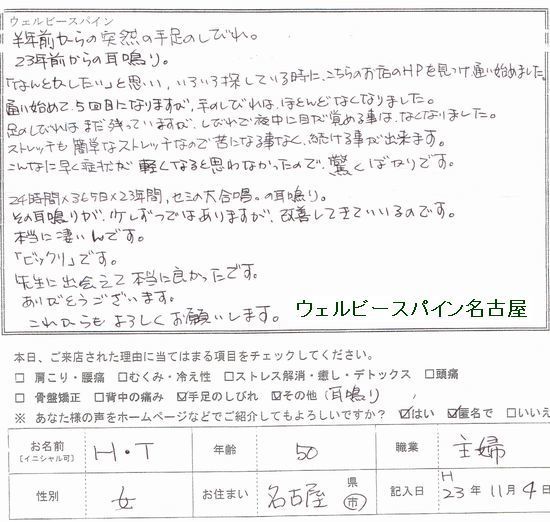 ウェルビースパイン
半年前からの突然の手足のしびれ。
23年前からの耳鳴り。
「なんとかしたい」と思い、いろいろ探している時に、こちらのお店のHPを見つけ通い始めました。
通い始めて、5回目になりますが、手のしびれは、ほとんどなくなりました。
足のしびれは まだ残っていますが、しびれで夜中に目が覚める事は、なくなりました。
ストレッチも簡単なストレッチなので苦になる事なく、続ける事が出来ます。
こんなに早く症状が軽くなると思わなかったので、驚くばかりです。
24時間×365日×23年間、セミの大合唱。の耳鳴り。
その耳鳴りが、少しずつではありますが、改善してきていいるのです。
本当に凄いんです。
「ビックリ」です。
先生に出会えて本当に良かったです。
ありがとうございます。
これからも よろしくお願いします。
ウェルビースパイン名古屋
本日、ご来店された理由に当てはまる項目をチェックしてください。
□ 肩こり・腰痛 □むくみ・冷え性 □ストレス解消・癒し・デトックス □頭痛
□ 骨盤矯正 □背中の痛み ☑手足のしびれ ☑その他(耳鳴り)
※ あなた様の声をホームページなどでご紹介してもよろしいですか？ ☑はい ☑匿名で □いいえ
お名前 [イニシャル可] H・T 年齢 50 職業 主婦
性別 女 お住まい 名古屋 県 市 記入日 H 23年 11月 4日